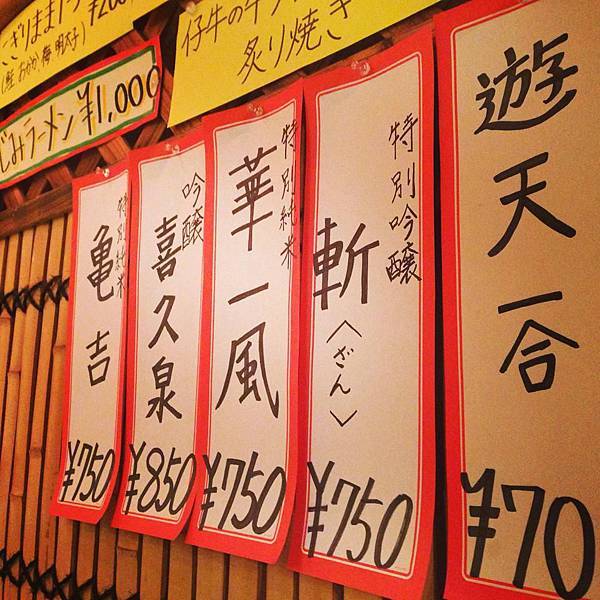 ぎりまま1つ ¥200
(鮭 おかか 梅 明太子)
じみラーメン ¥1,000
仔牛の
炙り焼き
特別純米
亀吉
¥750
吟醸
喜久泉
¥850
特別純米
華一風
¥750
特別吟醸
斬
〈ざん〉
¥750
遊天一合
¥70